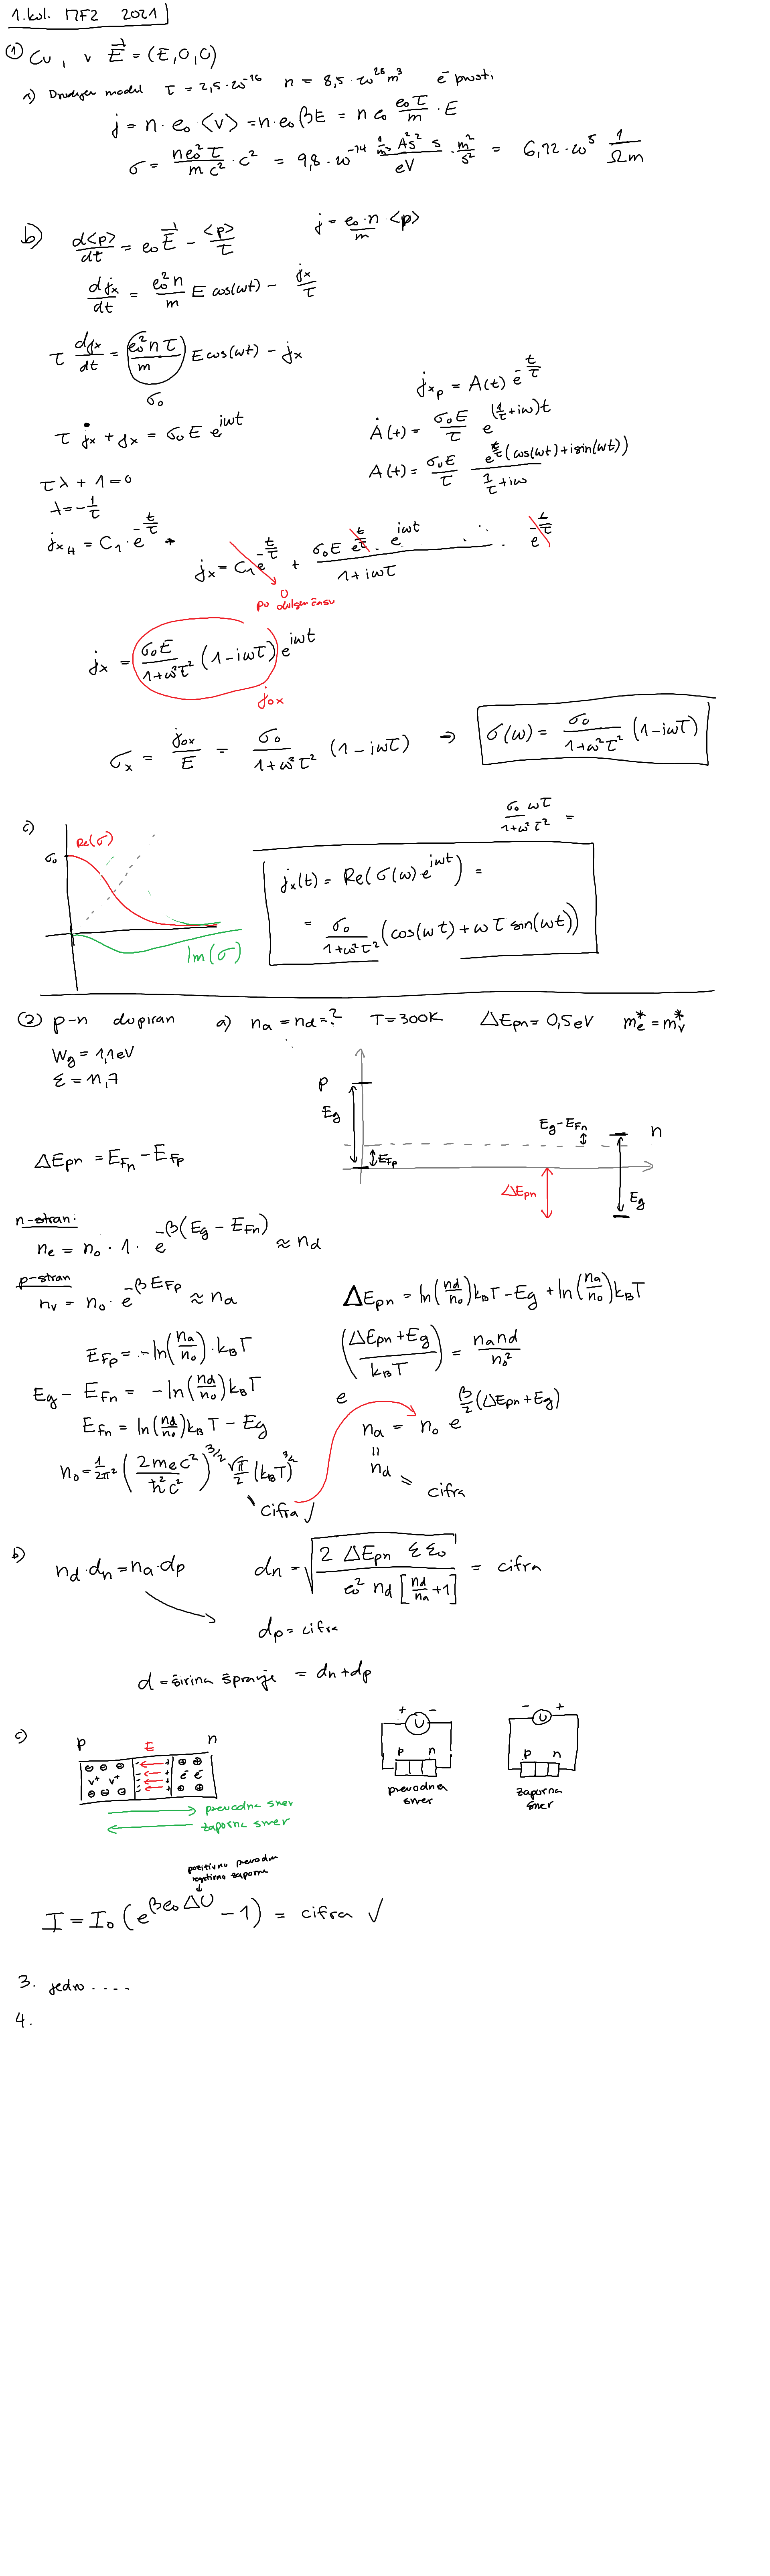 1. kol. MF2 2021
① Cu, v E⃗ = (E,0,0)
a) Drudejev model τ = 2,5·10⁻¹⁶ n = 8,5·10²⁸ m³ e⁻ prosti
j = n·e₀<v> = n·e₀βE = n e₀ (e₀τ/m)·E
σ = (n e₀² τ)/(m c²)·c² = 9,8·10⁻¹⁴ (1/m³ A²s² s)/eV · m²/s² = 6,72·10⁵ 1/(Ωm)
b) d<p>/dt = e₀E⃗ - <p>/τ j = (e₀·n/m) <p>
djx/dt = (e₀²n/m) E cos(ωt) - jx/τ
τ djx/dt = (e₀²nτ/m) E cos(ωt) - jx
σ₀
jxp = A(t) e^(-t/τ)
τ j̇x + jx = σ₀ E e^(iωt)
Ȧ(t) = (σ₀E/τ) e^((1/τ+iω)t)
A(t) = (σ₀E/τ) (e^(t/τ)(cos(ωt)+isin(ωt)))/(1/τ+iω)
τλ + 1 = 0
λ = -1/τ
jxH = C₁·e^(-t/τ)
jx = C₁e^(-t/τ) + (σ₀E e^(t/τ)·e^(iωt))/(1+iωτ) · e^(-t/τ)
0
po dolgem času
jx = (σ₀E/(1+ω²τ²))(1-iωτ) e^(iωt)
j0x
σx = j0x/E = (σ₀/(1+ω²τ²)) (1-iωτ) ⇒ σ(ω) = (σ₀/(1+ω²τ²)) (1-iωτ)
c) σ₀ Re(σ)
Im(σ)
(σ₀ ωτ)/(1+ω²τ²) =
jx(t) = Re(σ(ω)e^(iωt)) =
= (σ₀/(1+ω²τ²))(cos(ωt)+ωτ sin(ωt))
② p-n dopiran a) na = nd = ? T = 300K ΔEpn = 0,5eV me* = mv*
Wg = 1,1eV
ε = 11,7
p Eg EFp
Eg-EFn n
ΔEpn Eg
ΔEpn = EFn - EFp
n-stran:
ne = n₀·1·e^(-β(Eg-EFn)) ≈ nd
p-stran
nv = n₀·e^(-βEFp) ≈ na
ΔEpn = ln(nd/n₀)kBT - Eg + ln(na/n₀)kBT
EFp = -ln(na/n₀)·kBT
e^((ΔEpn+Eg)/kBT) = na nd/n₀²
Eg - EFn = -ln(nd/n₀)kBT
EFn = ln(nd/n₀)kBT - Eg
na = n₀ e^(β/2 (ΔEpn+Eg))
= nd = cifra
n₀ = 1/2π² (2mec²/ħ²c²)^(3/2) √π/2 (kBT)^(3/2)
cifra ✓
b) nd·dn = na·dp dn = √(2 ΔEpn ε ε₀/(e₀² nd [nd/na+1])) = cifra
dp = cifra
d = širina špranje = dn+dp
c) p E n
v⁺ v⁺
e⁻ e⁻
prevodna smer
zaporna smer
+ U -
p n
prevodna
smer
- U +
p n
zaporna
smer
pozitivno prevodna
negativno zaporna
I = I₀ (e^(βe₀ΔU) - 1) = cifra ✓
3. jedro ....
4.